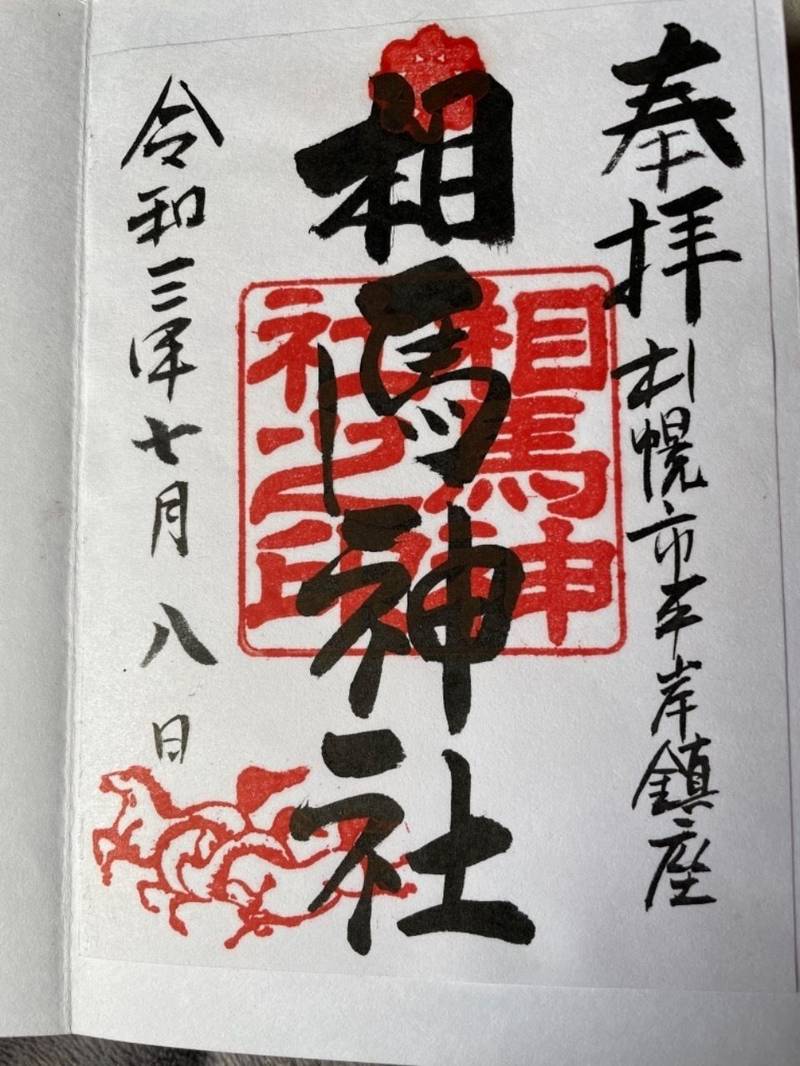 奉拝
札幌市平岸鎮座
相馬神社
相馬神
社之印
令和三年七月八日